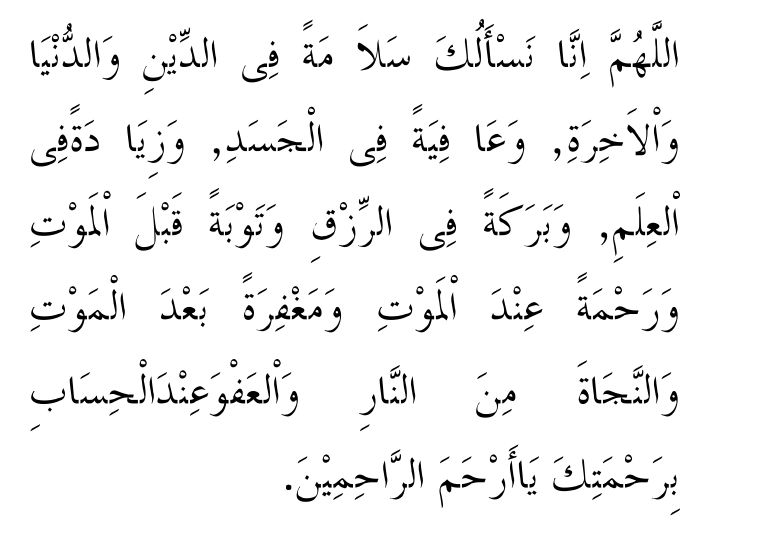 اللَّهُمَّ اِنَّا نَسْأَلُكَ سَلاَ مَةً فِى الدِّيْنِ وَالدُّنْيَا
وَاْلاَخِرَةِ, وَعَا فِيَةً فِى الْجَسَدِ, وَزِيَا دَةًفِى
اْلعِلَمِ, وَبَرَكَةً فِى الرِّزْقِ وَتَوْبَةً قَبْلَ اْلَموْتِ
وَرَحْمَةً عِنْدَ اْلَموْتِ وَمَغْفِرَةً بَعْدَ الْمَوْتِ
وَالنَّجَاةَ مِنَ النَّارِ وَاْلعَفْوَعِنْدَالْحِسَابِ
بِرَحْمَتِكَ يَاأَرْحَمَ الرَّاحِمِيْنَ.